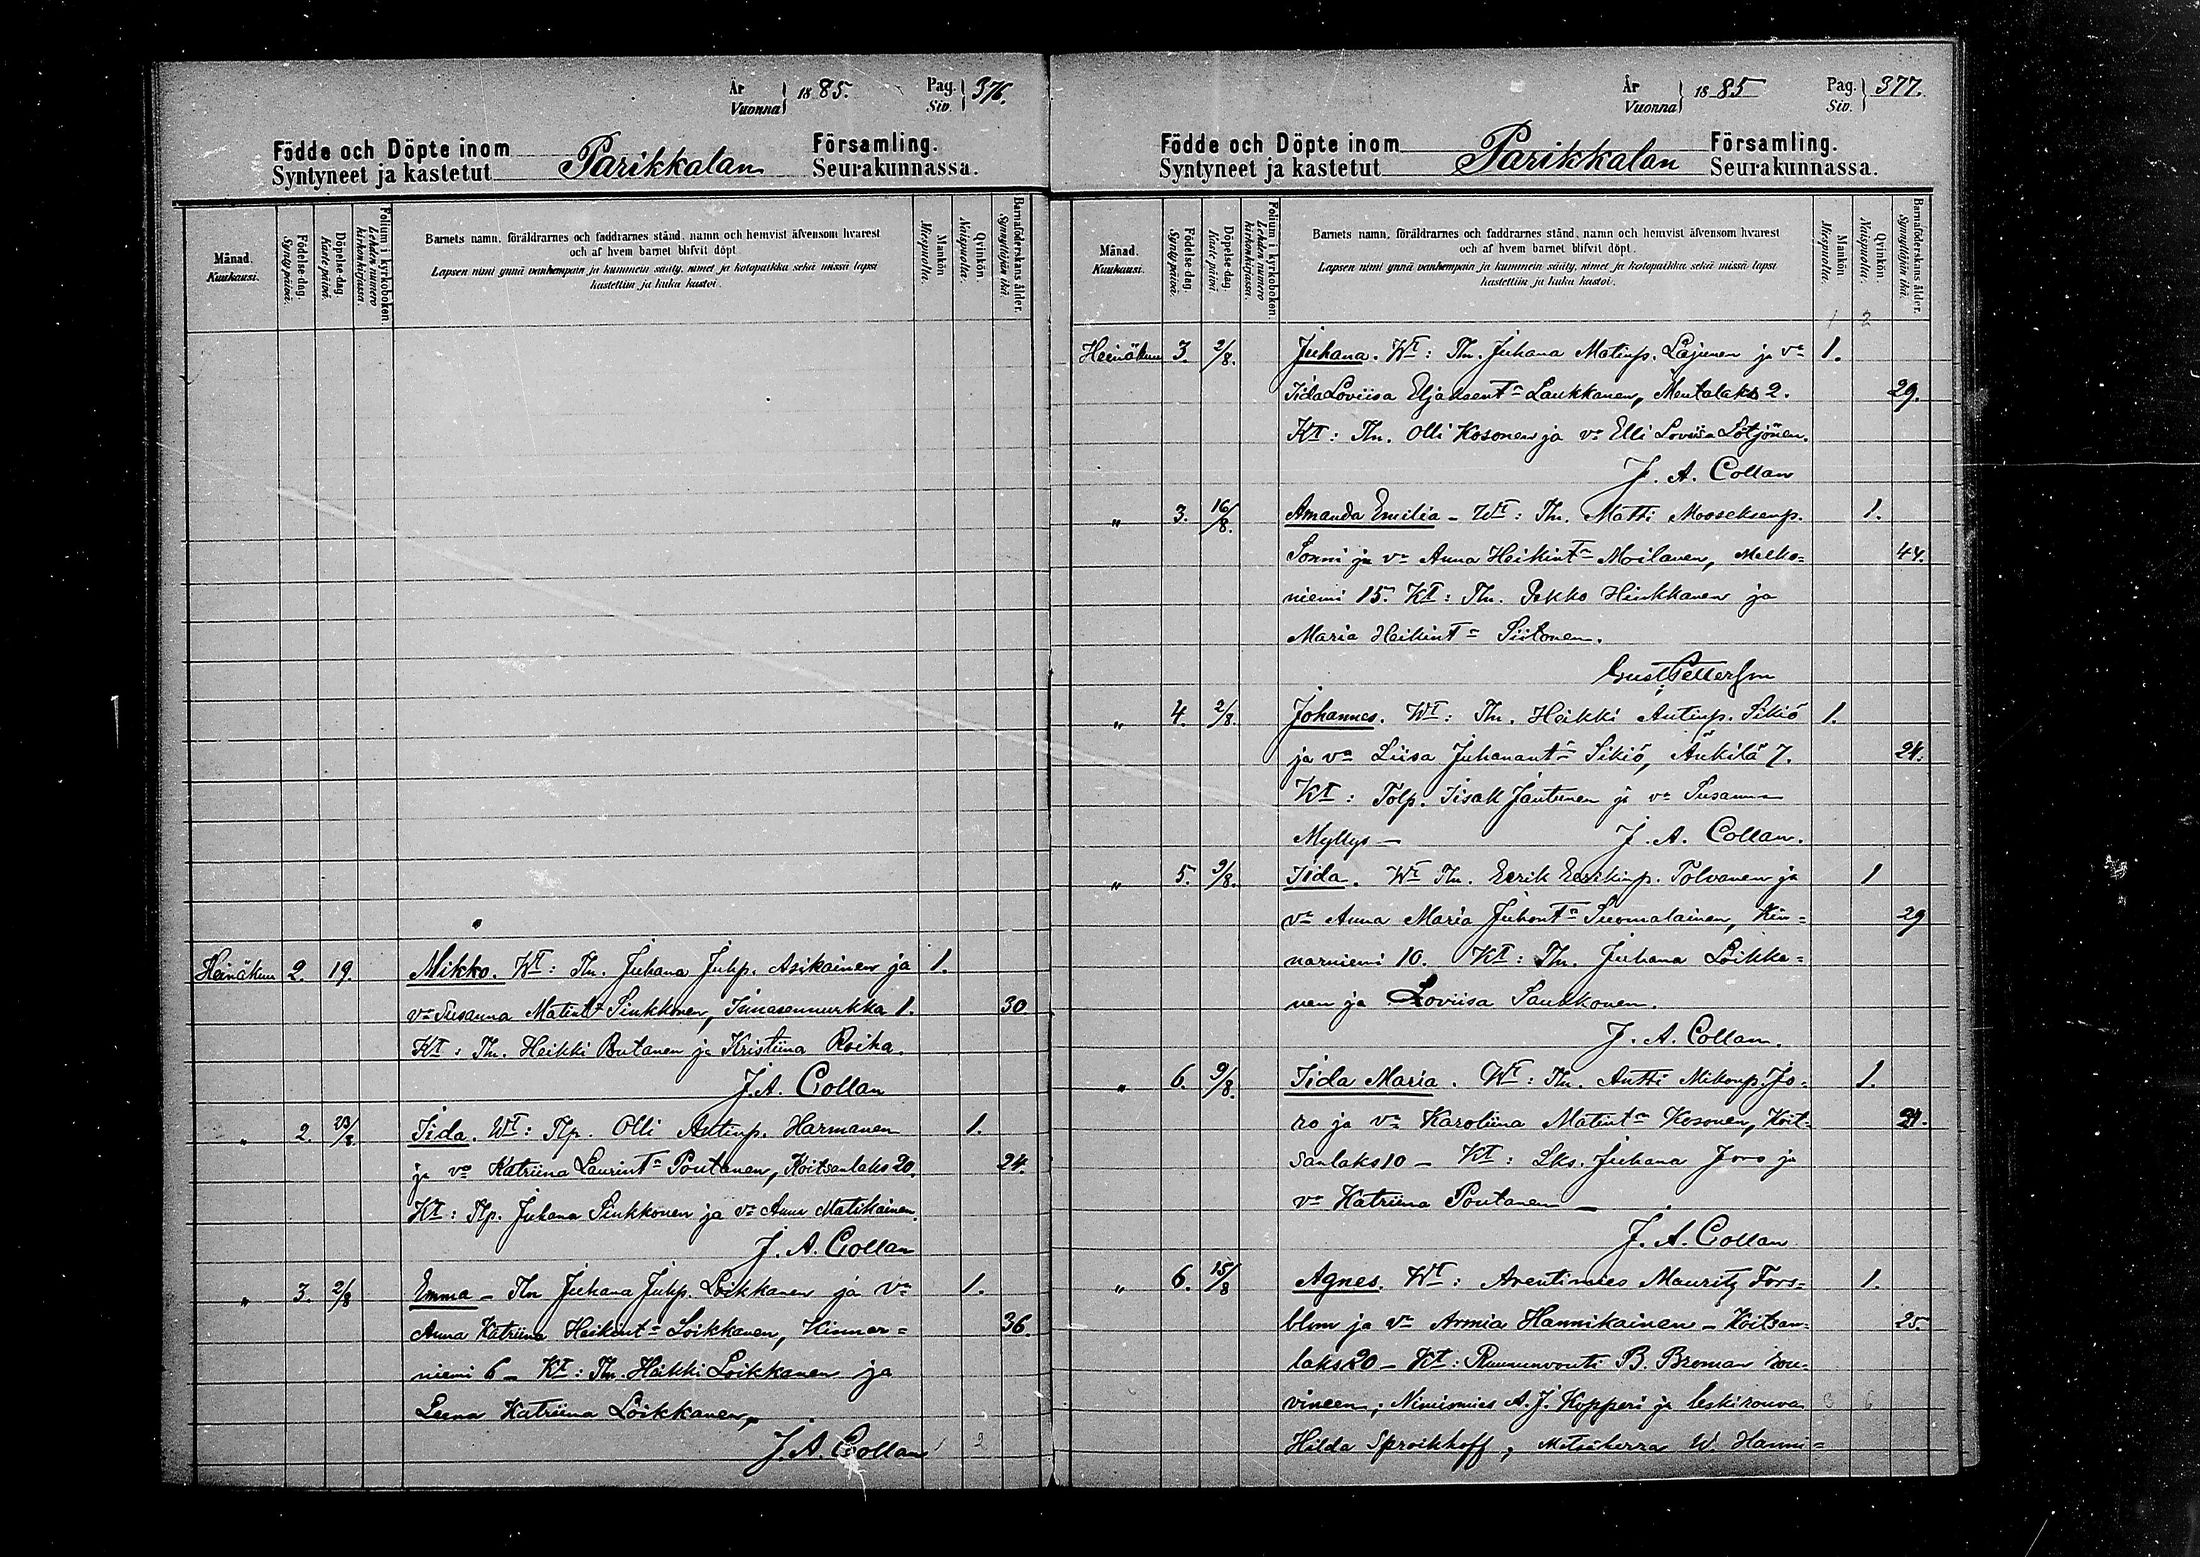 År Vuonna } 1885. Pag. Siv. } 376.
Födde och Döpte inom Parikkalan Församling.
Syntyneet ja kastetut Seurakunnassa.
Månad. Kuukausi.
Födelse-dag. Synty päivä.
Döpelse-dag. Kaste päivä.
Folium i kyrkoboken. Lehden numero kirkonkirjassa.
Barnets namn, föräldrarnes och faddrarnes stånd, namn och hemvist äfvensom hvarest
och af hvem barnet blifvit döpt.
Lapsen nimi ynnä vanhempain ja kummein sääty, nimet ja kotopaikka sekä missä lapsi
kastettiin ja kuka kastoi.
Mankön Miespuolta.
Qvinkön. Naispuolta.
Barnaföderskans ålder. Synnyttäjän ikä.
Heinäkuu 2. 19. Mikko. Wt: Tln. Juhana Juhp. Asikainen ja 1.
vo Susanna Matint Sinkkonen, Innasennurkka 1. 30
Kt: Tln. Heikki Poutanen ja Kristiina Roiha.
J. A. Collan
" 2. 23/8 Iida. Wt: Tlp. Olli Antinp. Harmanen 1.
ja vo Katriina Laurint Poutanen, Koitsanlaks 20. 24.
Kt: Tlp. Juhana Sinkkonen ja vo Anna Matikainen.
J. A. Collan
" 3. 2/8 Emma – Tln Juhana Juhp. Loikkanen ja vo 1.
Anna Katriina Heikint Loikkanen, Kinnar= 36.
niemi 6 – Kt: Tln. Heikki Loikkanen ja
Leena Katriina Loikkanen.
J. A. Collan 1 2
År Vuonna } 1885 Pag. Siv. } 377.
Födde och Döpte inom Parikkalan Församling.
Syntyneet ja kastetut Seurakunnassa.
Månad. Kuukausi.
Födelse-dag. Synty päivä.
Döpelse-dag. Kaste päivä.
Folium i kyrkoboken. Lehden numero kirkonkirjassa.
Barnets namn, föräldrarnes och faddrarnes stånd, namn och hemvist äfvensom hvarest
och af hvem barnet blifvit döpt.
Lapsen nimi ynnä vanhempain ja kummein sääty, nimet ja kotopaikka sekä missä lapsi
kastettiin ja kuka kastoi.
Mankön Miespuolta.
Qvinkön. Naispuolta.
Barnaföderskans ålder. Synnyttäjän ikä.
1 2
Heinäkuu 3. 2/8. Juhana. Wt: Tln. Juhana Matinp. Lajunen ja vo 1.
Iida Loviisa Eljaksent Laukkanen, Mentalaks 2. 29.
Kt: Tln. Olli Kosonen ja vo Elli Loviisa Lötjönen.
J. A. Collan
" 3. 16/8. Amanda Emilia – Wt: Tln. Matti Mooseksenp. 1.
Sonni ja vo Anna Heikint Moilanen, Melko= 44.
niemi 15. Kt: Tln. Pekko Hinkkanen ja
Maria Heikint Siitonen.
Gust Petterson
" 4. 2/8. Johannes. Wt: Tln. Heikki Antinp. Sikiö 1.
ja vo Liisa Juhanant Sikiö, Änkilä 7. 24.
Kt: Tölp. Iisak Jantunen ja vo Susanna
Myllys – J. A. Collan.
" 5. 9/8. Iida. Wt Tln. Eerik Eerikinp. Tolvanen ja 1
vo Anna Maria Juhont Suomalainen, Kin= 29
narniemi 10. Kt: Tln. Juhana Loikka=
nen ja Loviisa Saukkonen.
J. A. Collan.
" 6. 9/8. Iida Maria. Wt: Tln. Antti Mikonp. Jo= 1.
ro ja vo Karoliina Matint Kosonen, Koit=
sanlaks 10 – Kt: Lks. Juhana Joro ja
vo Katriina Poutanen –
J. A. Collan
" 6. 15/8 Agnes. Wt: Arentimies Mauritz Fors= 1.
blom ja vo Armia Hannikainen – Koitsan= 25.
laks 20 – Kt: Ruununvouti B. Broman rou=
vineen; Nimismies A. J. Hopperi ja leskirouva 3 6
Hilda Sproikhoff; Metsäherra W. Hanni=